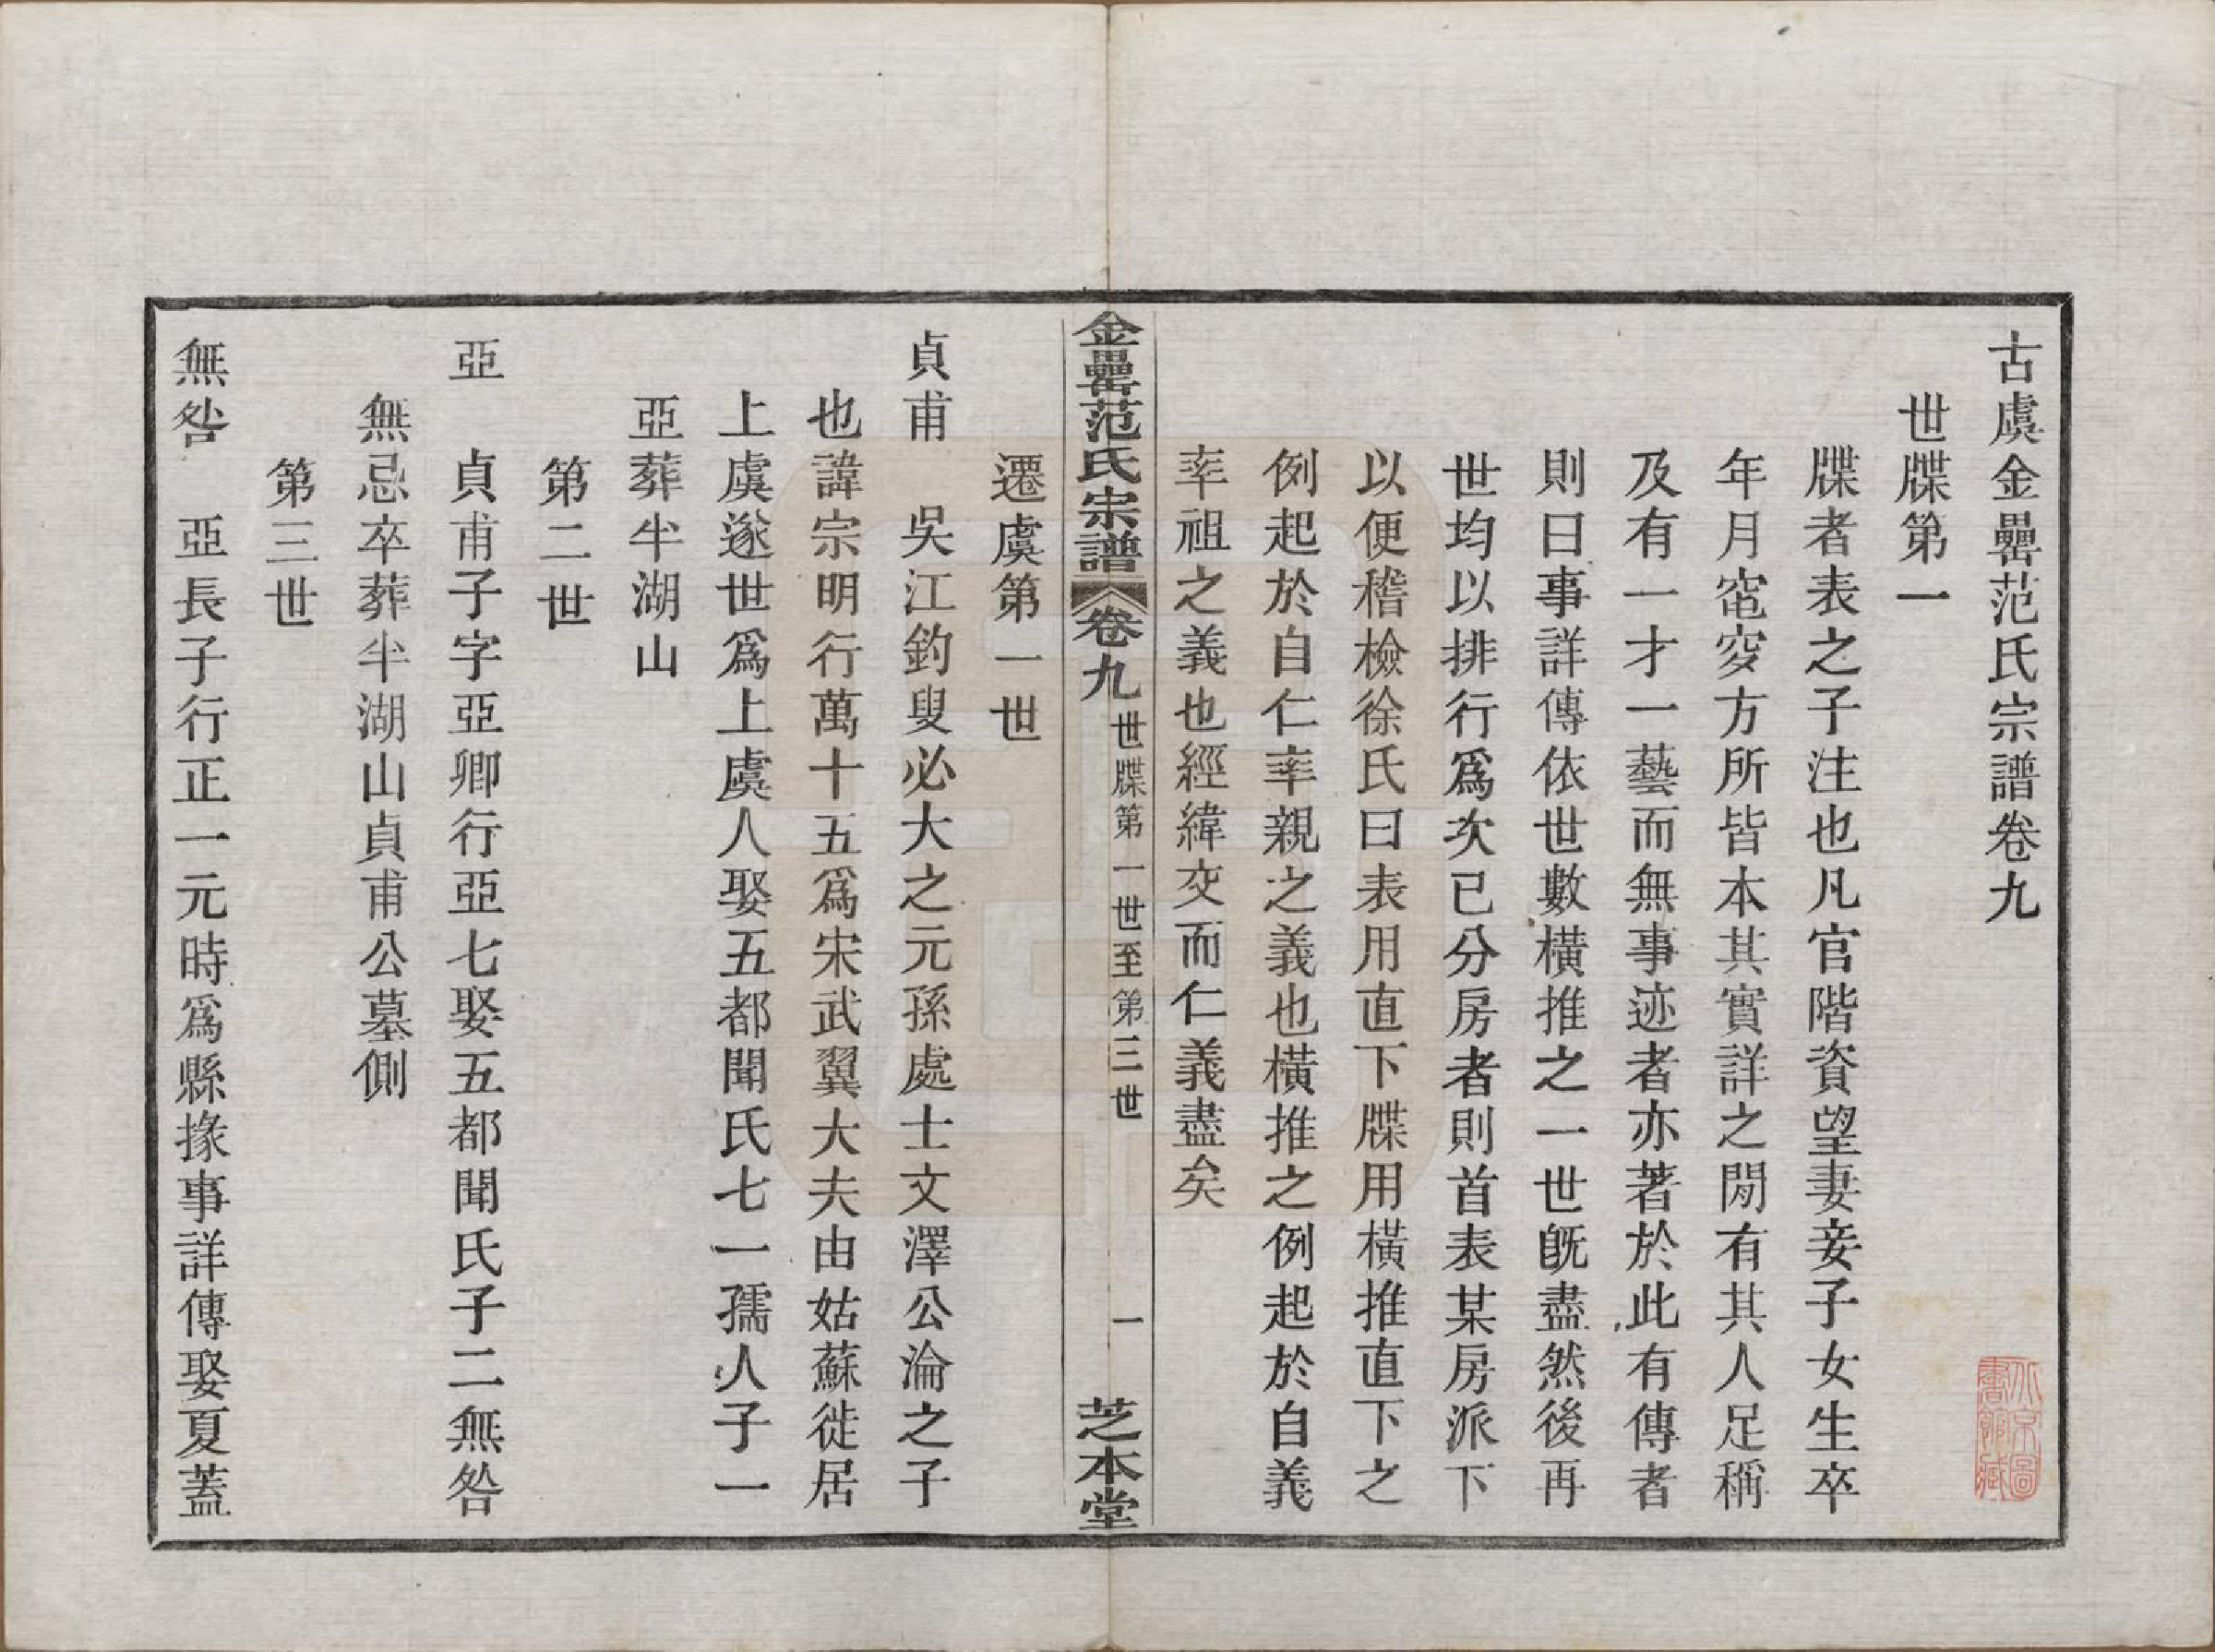 古虞金罍范氏宗譜卷九
世牒第一
牒者表之子注也凡官階資望妻妾子女生卒
年月窀穸方所皆本其實詳之閒有其人足稱
及有一才一藝而無事迹者亦著於此有傳者
則曰事詳傳依世數橫推之一世旣盡然後再
世均以排行爲次已分房者則首表某房派下
以便稽檢徐氏曰表用直下牒用橫推直下之
例起於自仁率親之義也橫推之例起於自義
率祖之義也經緯交而仁義盡矣
金罍范氏宗譜 卷九 世牒第一世至第三世 一 芝本堂
遷虞第一世
貞甫 吳江釣叟必大之元孫處士文澤公淪之子
也諱宗明行萬十五爲宋武翼大夫由姑蘇徙居
上虞遂世爲上虞人娶五都聞氏七一孺人子一
亞葬半湖山
第二世
亞 貞甫子字亞卿行亞七娶五都聞氏子二無咎
無忌卒葬半湖山貞甫公墓側
第三世
無咎 亞長子行正一元時爲縣掾事詳傳娶夏蓋
北京圖書館藏